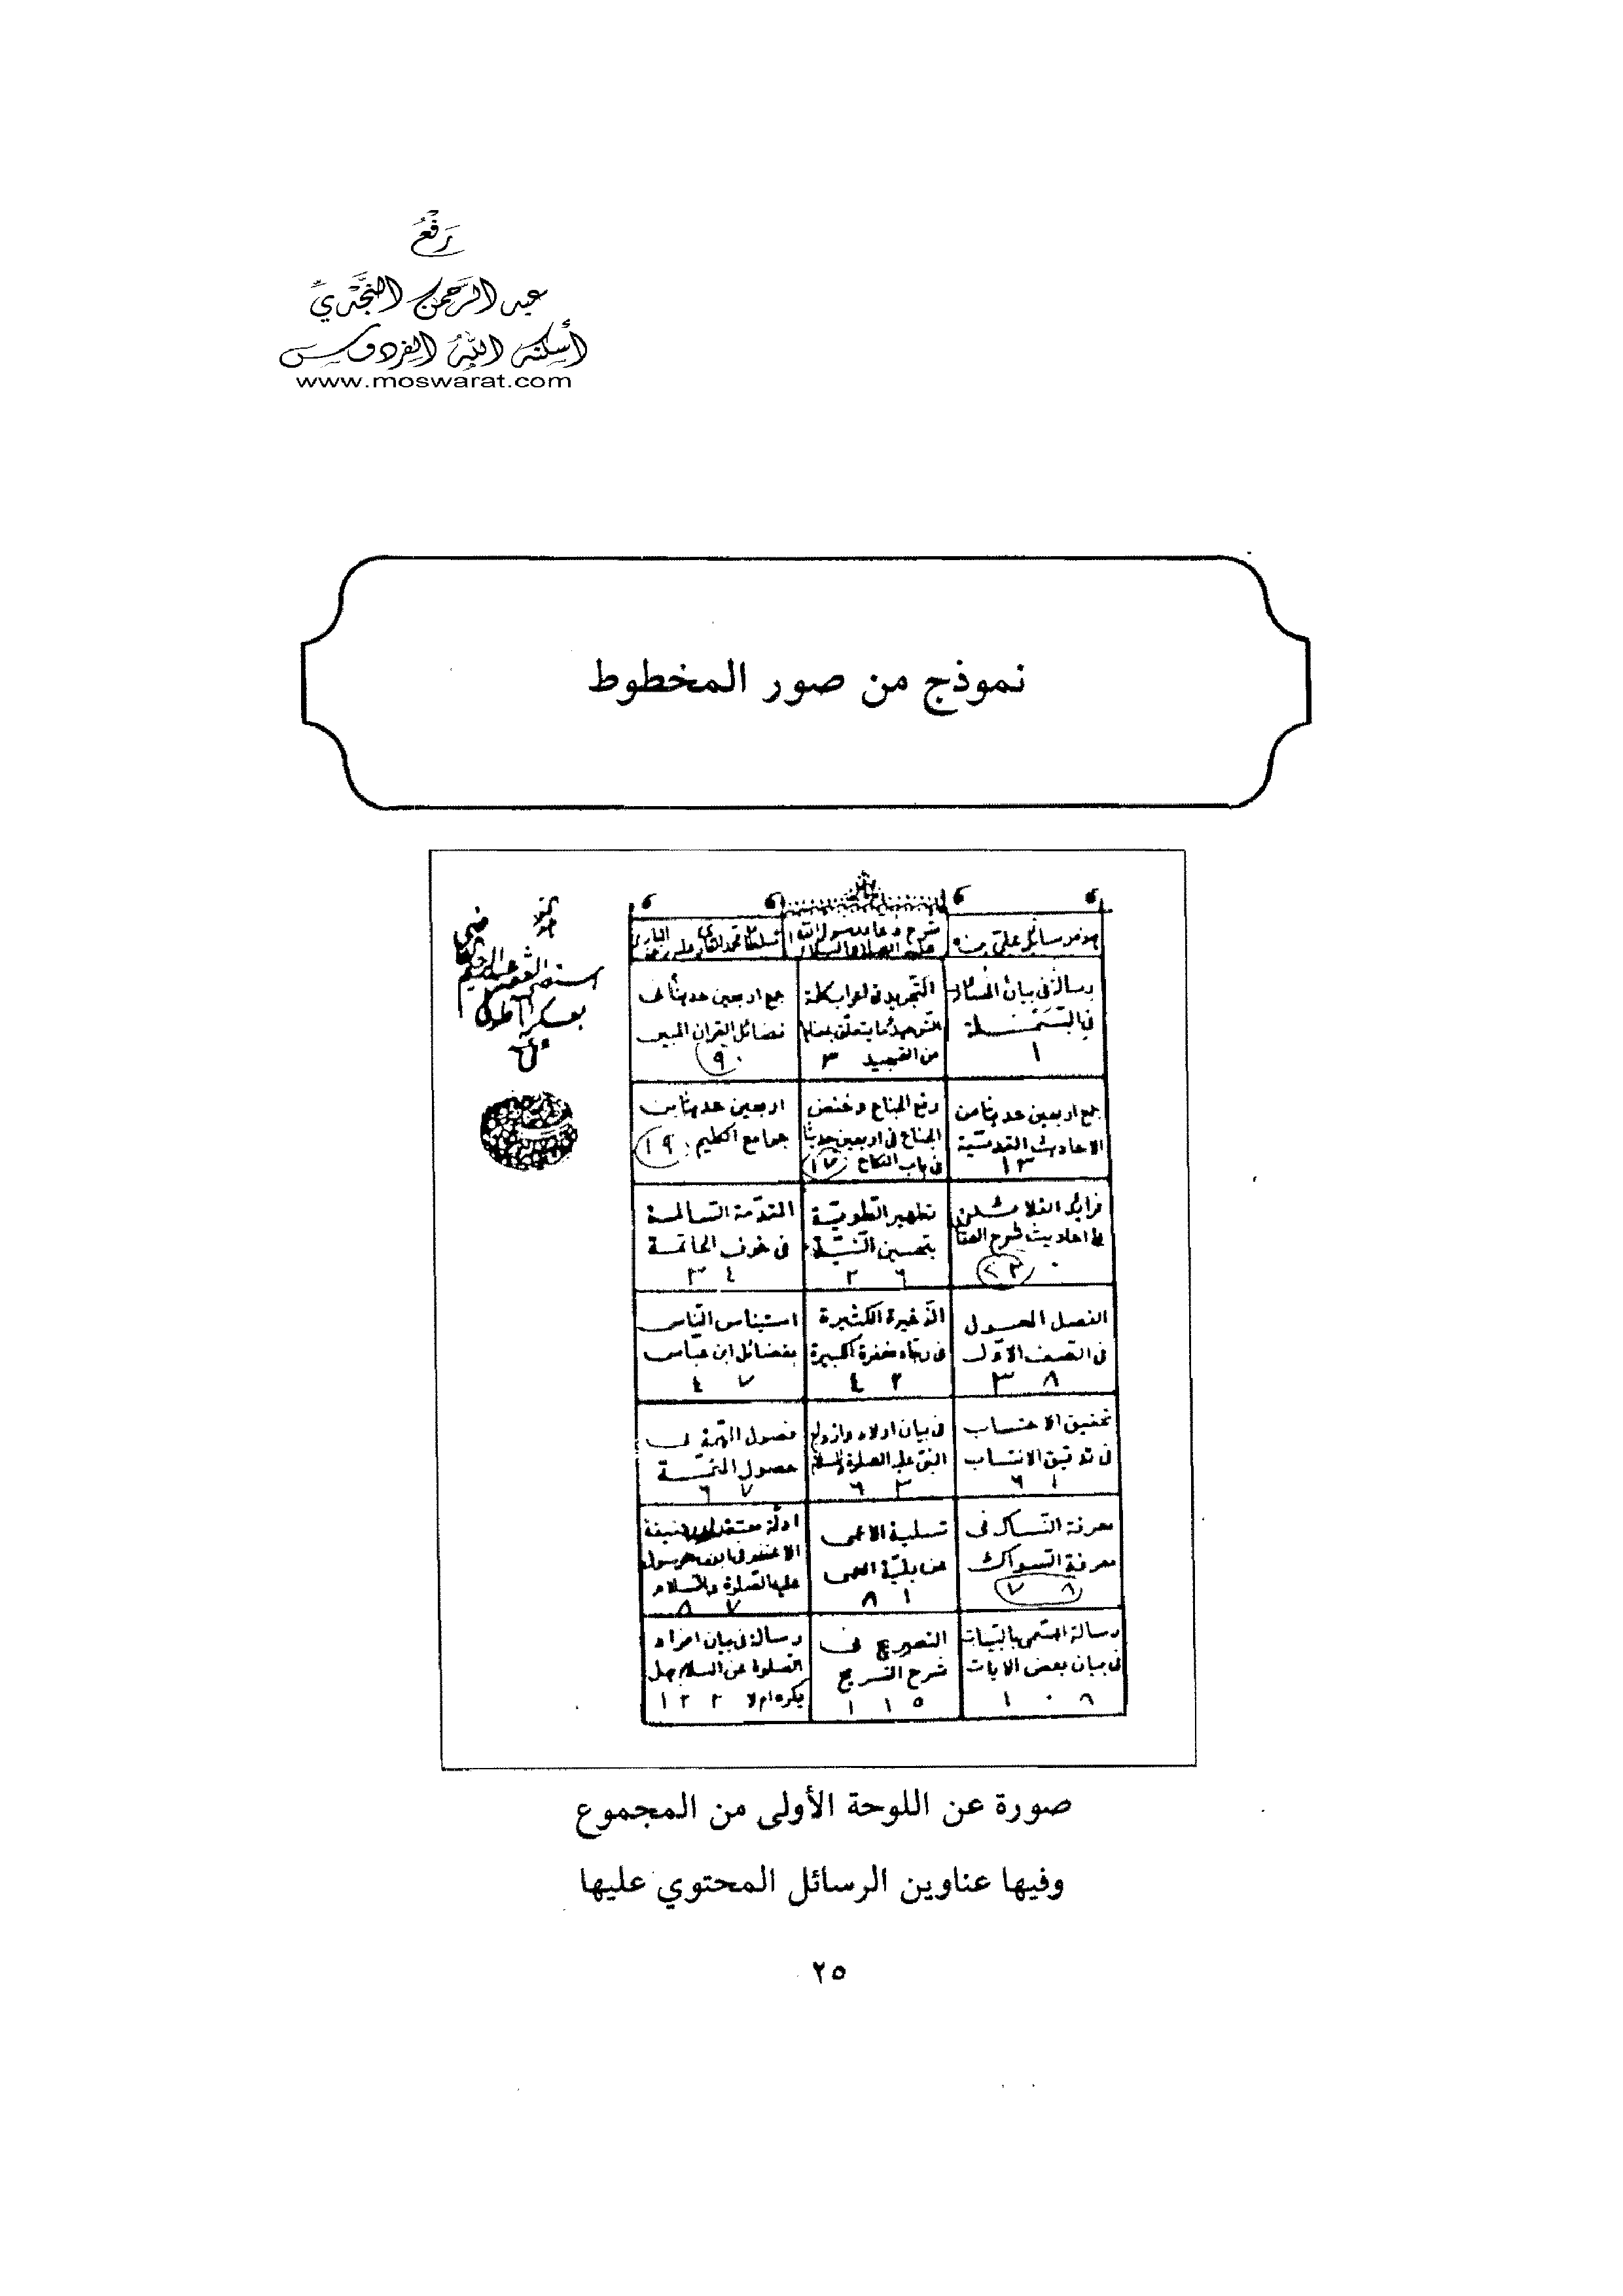 رَفْعُ
عبد الرَّحمن النَّجْديِّ
أسكنه الله الفردوس
www.moswarat.com
نموذج من صور المخطوط
رسالة فى بيان
فى البسملة
١
التجريد فى اعراب كلمة
التوحيد وما يتعلق
من التمجيد ٣
جمع اربعين حديثا فى
فضائل القرآن المبين
٩
جمع اربعين حديثا من
الاحاديث القدسية
١٣
رفع الجناح وخفض
الجناح فى اربعين حديثا
فى باب النكاح ١٧
اربعين حديثا من
جوامع الكليم ١٩
فرايد القلائد
احاديث شرح العقائد
تطهير الطوية
بتحسين النية
٢ ٦
المقدمة السالمة
فى خوف الخاتمة
٣ ٤
الفصل المعول
فى الصف الاول
٣ ٨
الذخيرة الكثيرة
فى رجاء مغفرة الكبيرة
٤ ٢
استيناس الناس
بفضائل ابن عباس
٤ ٧
تحقيق الاحتساب
فى تدقيق الانتساب
٦ ١
فى بيان اولاد وازواج
النبى عليه الصلوة والسلام
٦ ٣
فصول المهمة فى
حصول المتمة
٦ ٧
معرفة النساك فى
معرفة السواك
٧ ٨
تسلية الاعمى
عن بلية العمى
٨ ١
ادلة معتقد ابى حنيفة
الاعظم فى ابوى الرسول
عليه الصلوة والسلام
٨ ٧
رسالة المسمى بالبينات
فى بيان بعض الايات
١ ٠ ٨
التصريح فى
شرح التسريح
١ ١ ٥
رسالة فى بيان افراد
الصلوة عن السلام هل
يكره ام لا ١ ٢ ٢
صورة عن اللوحة الأولى من المجموع
وفيها عناوين الرسائل المحتوي عليها
٢٥